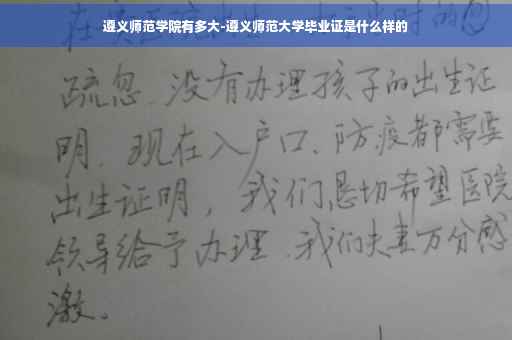 遵义师范学院有多大-遵义师范大学毕业证是什么样的
疏忽、没有办理孩子的出生证
明、现在入户口、防疫都需要
出生证明，我们恳切希望医院
领导给予办理、我们夫妻万分感
激。